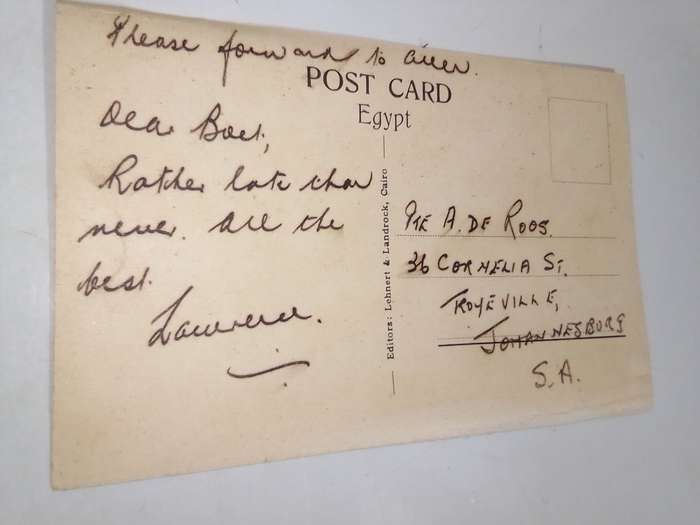 Please forward to
POST CARD
Egypt
Dear Boet,
Rather late than
never. All the
best.
Lawrence.
Editors: Lehnert & Landrock, Cairo
PTE A. DE ROOS.
36 CORNELIA ST.
TROYEVILLE,
JOHANNESBURG
S.A.